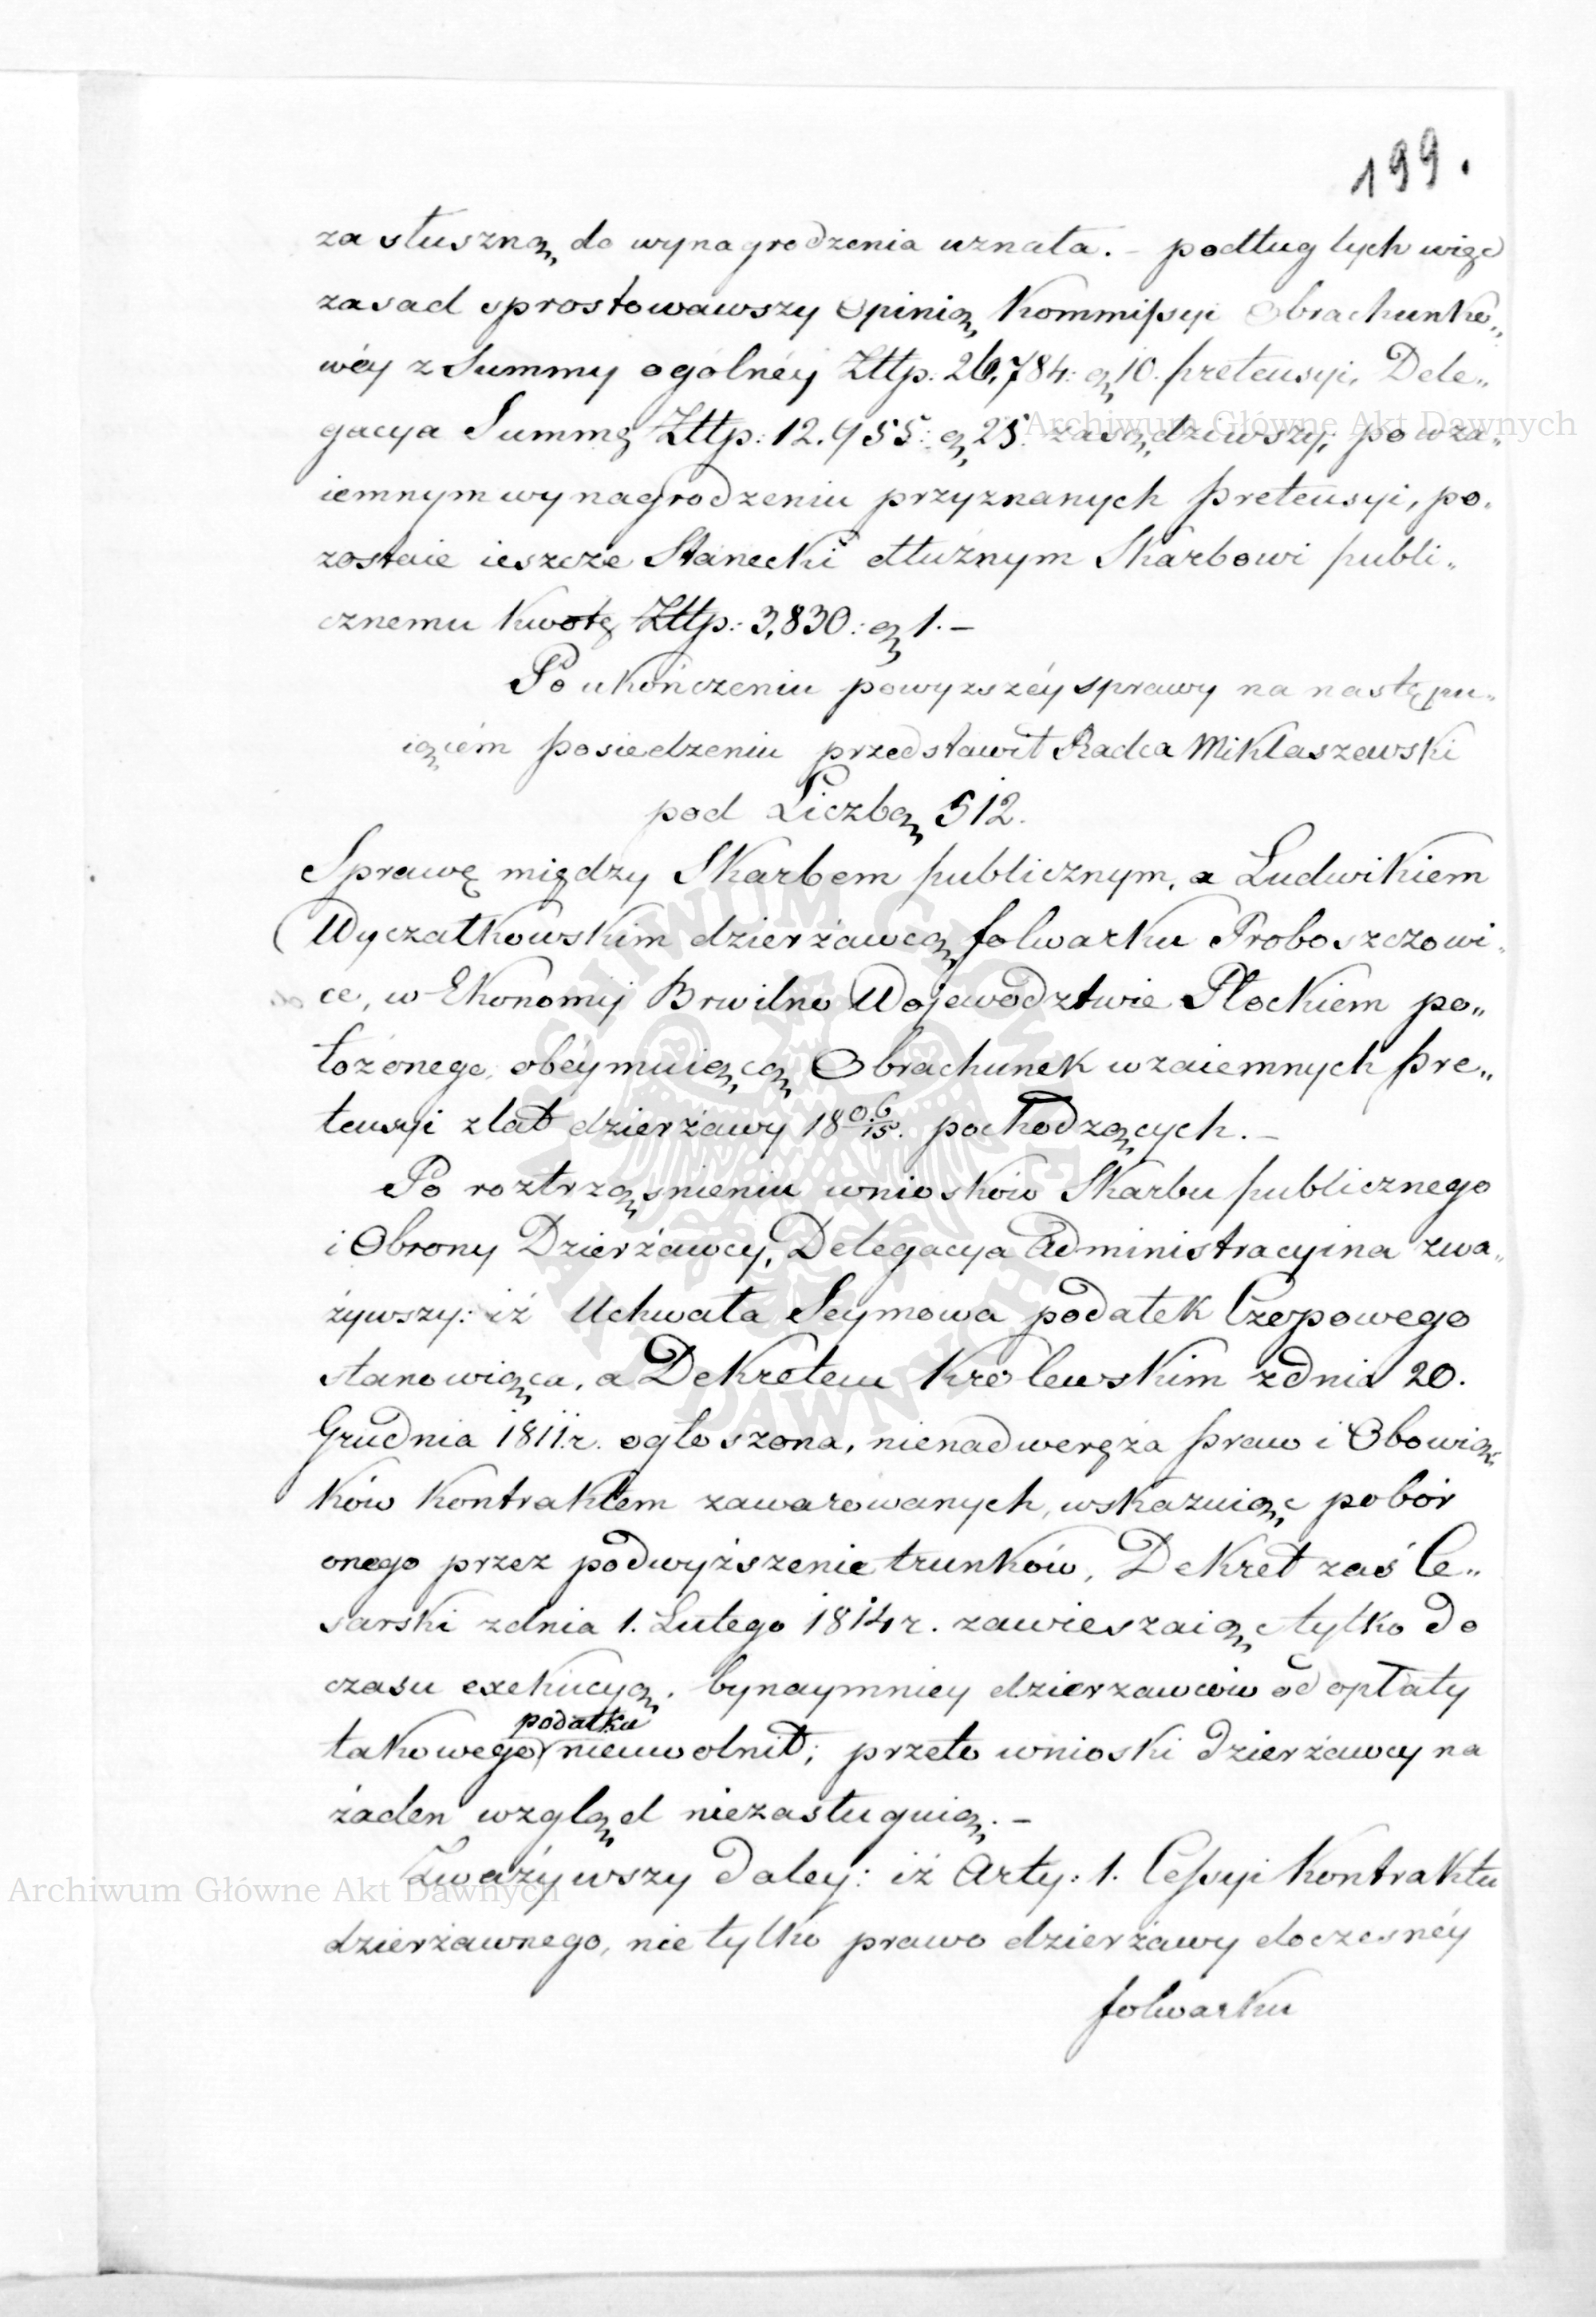 199.
za słuszną do wynagrodzenia uznała. – podług tych więc
zasad sprostowawszy Opinią Kommissyi Obrachunko„
wéy z Summy ogólnéy Złłp: 26,784: g 10. pretensyi, Dele„
gacya Summę Złłp: 12.955: g 25. zasądziwszy; po wza„
iemnym wynagrodzeniu przyznanych pretensyi, po„
zostaie ieszcze Stanecki dłużnym Skarbowi publi„
cznemu Kwotę Złłp: 3,830: g 1. –
Po ukończeniu powyższéy sprawy na następu„
iącém posiedzeniu przedstawił Radca Miklaszewski
pod Liczbą 512.
Sprawę między Skarbem publicznym, a Ludwikiem
Wyczałkowskim dzierżawcą folwarku Proboszczowi„
ce, w Ekonomij Brwilno Wojewodztwie Płockiem po„
łożonego, obéymuiącą Obrachunek wzaiemnych pre„
tensyi z lat dzierżawy 18 06/15. pochodzących. –
Po roztrząśnieniu wniosków Skarbu publicznego
i Obrony Dzierżawcy, Delegacya Administracyina zwa„
żywszy: iż Uchwała Seymowa podatek Czopowego
stanowiąca, a Dekretem Królewskim z dnia 20.
Grudnia 1811.r. ogłoszona, nienadweręża praw i Obowiąz„
ków Kontraktem zawarowanych, wskazuiąc pobór
onego przez podwyższenie trunków, Dekret zaś Ce„
sarski z dnia 1. Lutego 1814 r. zawieszaiąc tylko do
czasu exekucyą, bynaymniey dzierzawców od opłaty
takowego podatku nieuwolnił; przeto wnioski dzierżawcy na
żaden wzgląd niezasługuią. –
Zważywszy daley: iż Arty: 1. Cessyi Kontraktu
dzierżawnego, nie tylko prawo dzierżawy doczesnéy
folwarku
Archiwum Główne Akt Dawnych
Archiwum Główne Akt Dawnych
ARCHIWUM GŁÓWNE AKT DAWNYCH